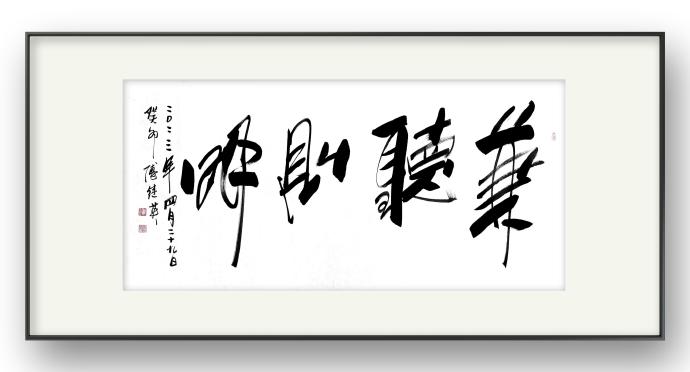 兼聽則明
二〇二三年四月二十九日
癸卯 傅继英